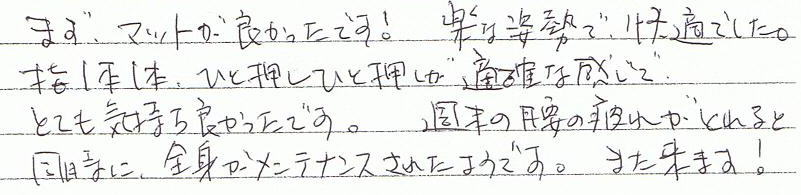 まず、マットが良かったです！ 楽な姿勢で、快適でした。
指1本1本、ひと押しひと押しが適確な感じで、
とても気持ち良かったです。 週末の腰の疲れがとれると
同時に、全身がメンテナンスされたようです。 また来ます！